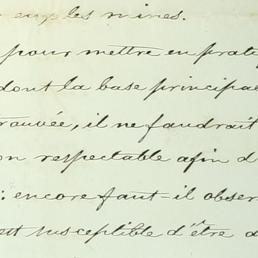 les mines.
pour mettre en prati
dont la base principal
rouvée, il ne faudrait
on respectable afin d
: encore faut-il obser
est susceptible d'être